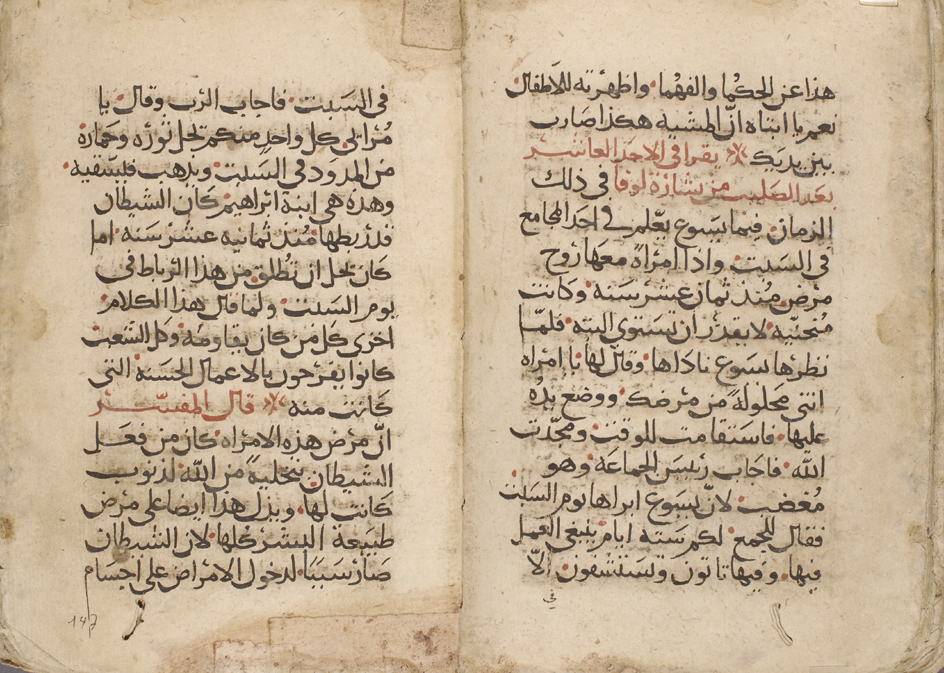 هذا عن الحكما والفهما واظهرته للاطفال
نعم يا ابتاه ان المشيه هكذا صارت
بين يديك يقرا في الاحد العاشر
بعد الصليب من بشارة لوقا في ذلك
الزمان فيما يسوع يعلم في احد المجامع
في السبت واذا امراة معها روح
مرض منذ ثمان عشر سنه وكانت
منحنيه لا يقدر ان تستوي البته فلما
نظرها يسوع ناداها وقال لها يا امراه
انتي محلولة من مرضك ووضع يده
عليها فاستقامت للوقت ومجدت
الله فاجاب رئيس الجماعة وهو
مغضب لان يسوع ابراها يوم السبت
فقال للجمع لكم سته ايام ينبغي العمل
فيها وفيها تاتون وتستشفون الا
في
في السبت فاجاب الرب وقال يا
مراتي كل واحد منكم يحل ثوره وحماره
من المدود في السبت ويذهب فيسقيه
وهذه هي ابنة ابراهيم كان الشيطان
قد ربطها منذ ثمانيه عشر سنه اما
كان يحل ان تطلق من هذا الرباط في
يوم السبت ولما قال هذا الكلام
اخزي كل من كان يقاومه وكل الشعب
كانوا يفرحون بالاعمال الحسنة التي
كانت منه قال المفسر
ان مرض هذه الامراه كان من فعل
الشيطان بتخلية من الله لذنوب
كانت لها ويدل هذا ايضا على مرض
طبيعة البشر كلها لان الشيطان
صار سببا لدخول الامراض على اجسام
147